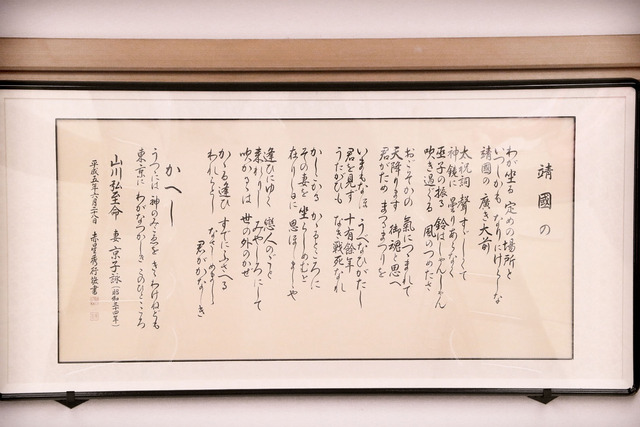 靖國の
わが坐る 定めの場所と
いつしかも なりにけらしな
靖國の 廣き大前
太祝詞 聲すヾしくて
神鏡に 曇りあらなく
巫子の振る 鈴はしゃんしゃん
吹き過ぐる 風のつめたさ
おごそかの 氣につつまれて
天降ります 御魂と思へ
君がため まつるまつりを
いまもなほ うべなひがたし
君を見ず 十有餘年
うたがひも なき戰死なれ
かしこかる かゝるところに
その妻を 坐らしめむと
在りし日に 思ほしましや
逢ひにゆく 戀人のごと
來れりし みやしろにして
吹かるゝは 世の外のかぜ
かゝる逢ひ すでにふさへる
われとしも なさしめましゝ
君がかなしき
かへし
うつつには 神のみこゑを きゝわけねども
東京に わがなつかしき このひとところ
山川弘至命 妻 京子詠(昭和三十四年)
平成五年六月二十六日 赤星秀行 謹書